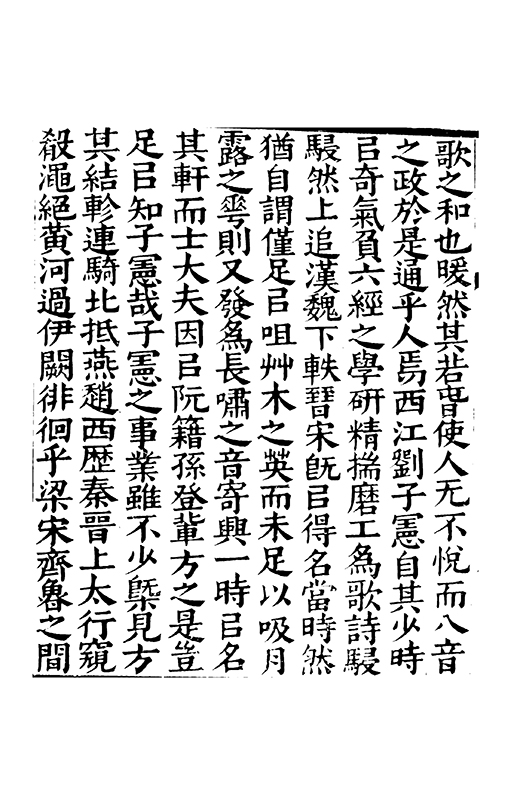 歌之和也暖然其若春使人无不悅而八音
之政於是通乎人焉西江劉子憲自其少時
㠯奇氣負六經之學研精揣磨工為歌詩駸
駸然上追漢魏下軼晉宋旣㠯得名當時然
猶自謂僅足㠯咀艸木之英而未足以吸月
露之粵則又發為長嘯之音寄興一時㠯名
其軒而士大夫因㠯阮籍孫登輩方之是豈
足㠯知子憲哉子憲之事業雖不少槩見方
其結軫連騎北抵燕趙西歷秦晉上太行窺
殽澠絕黃河過伊闕徘徊乎梁宋齊魯之間